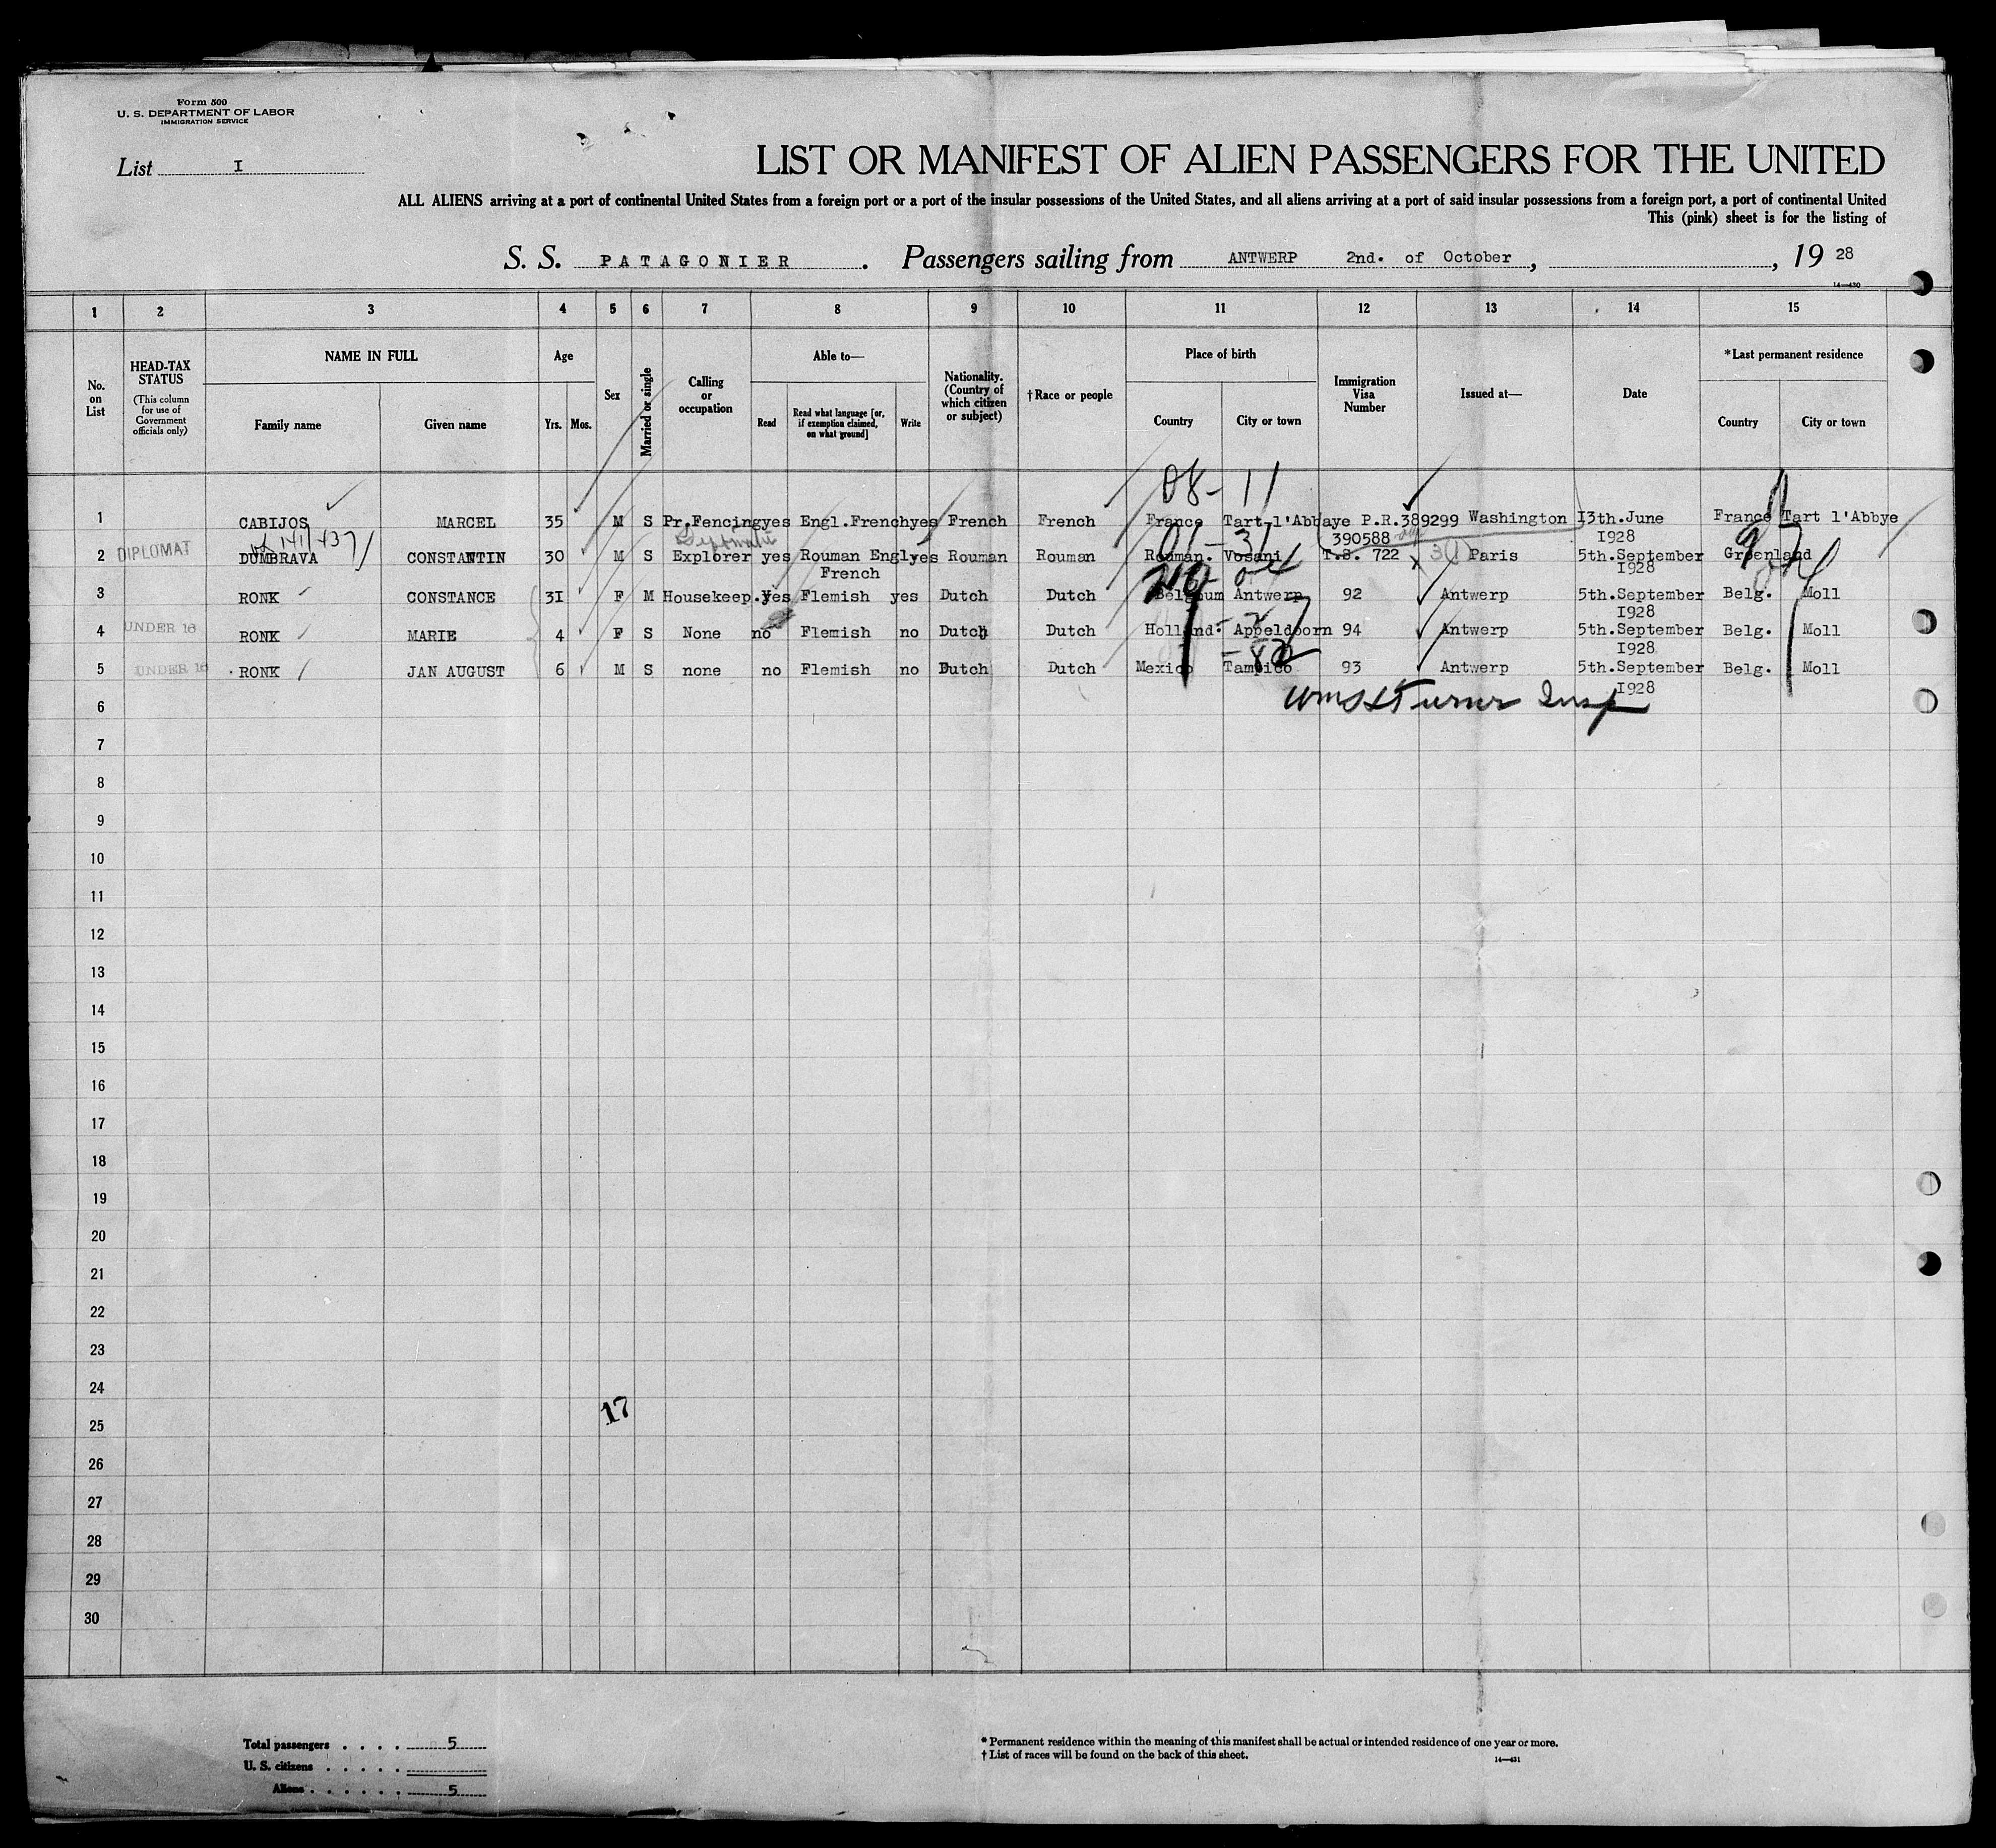 Form 500
U. S. DEPARTMENT OF LABOR
IMMIGRATION SERVICE
List I
LIST OR MANIFEST OF ALIEN PASSENGERS FOR THE UNITED
ALL ALIENS arriving at a port of continental United States from a foreign port or a port of the insular possessions of the United States, and all aliens arriving at a port of said insular possessions from a foreign port, a port of continental United
This (pink) sheet is for the listing of
S. S. PATAGONIER. Passengers sailing from ANTWERP 2nd. of October, , 19 28
14—430
1 2 3 4 5 6 7 8 9 10 11 12 13 14 15
No. on List
HEAD-TAX STATUS
(This column for use of Government officials only)
NAME IN FULL
Family name Given name
Age
Yrs. Mos.
Sex
Married or single
Calling or occupation
Able to—
Read Read what language [or, if exemption claimed, on what ground] Write
Nationality. (Country of which citizen or subject)
†Race or people
Place of birth
Country City or town
Immigration Visa Number
Issued at—
Date
*Last permanent residence
Country City or town
08- 11
1 CABIJOS MARCEL 35 M S Pr.Fencing yes Engl.French yes French French France Tart-l'Abbaye P.R.389299 Washington 13th.June France Tart l'Abbye
390588 I928
2 DIPLOMAT DUMBRAVA CONSTANTIN 30 M S Explorer yes Rouman Engl yes Rouman Rouman Rouman. Vosani T.S. 722 Paris 5th.September Greenland
French I928
3 RONK CONSTANCE 31 F M Housekeep. yes Flemish yes Dutch Dutch Belgium Antwerp 92 Antwerp 5th.September Belg. Moll
I928
4 UNDER 16 RONK MARIE 4 F S None no Flemish no Dutch Dutch Holland. Appeldoorn 94 Antwerp 5th.September Belg. Moll
I928
5 UNDER 16 RONK JAN AUGUST 6 M S none no Flemish no Dutch Dutch Mexico Tampico 93 Antwerp 5th.September Belg. Moll
I928
6 Turner Insp
7
8
9
10
11
12
13
14
15
16
17
18
19
20
21
22
23
24
17
25
26
27
28
29
30
Total passengers . . . . 5
U. S. citizens . . . . .
Aliens . . . . . . 5
* Permanent residence within the meaning of this manifest shall be actual or intended residence of one year or more.
† List of races will be found on the back of this sheet.
14—431